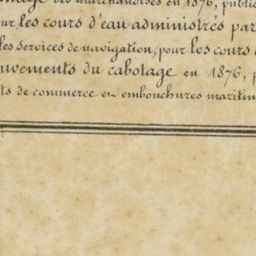 des marchandises en 1876, public
ur les cours d'eau administrés par
les services de navigation, pour les cours
uvements du cabotage en 1876, p
ts de commerce en embouchures maritim